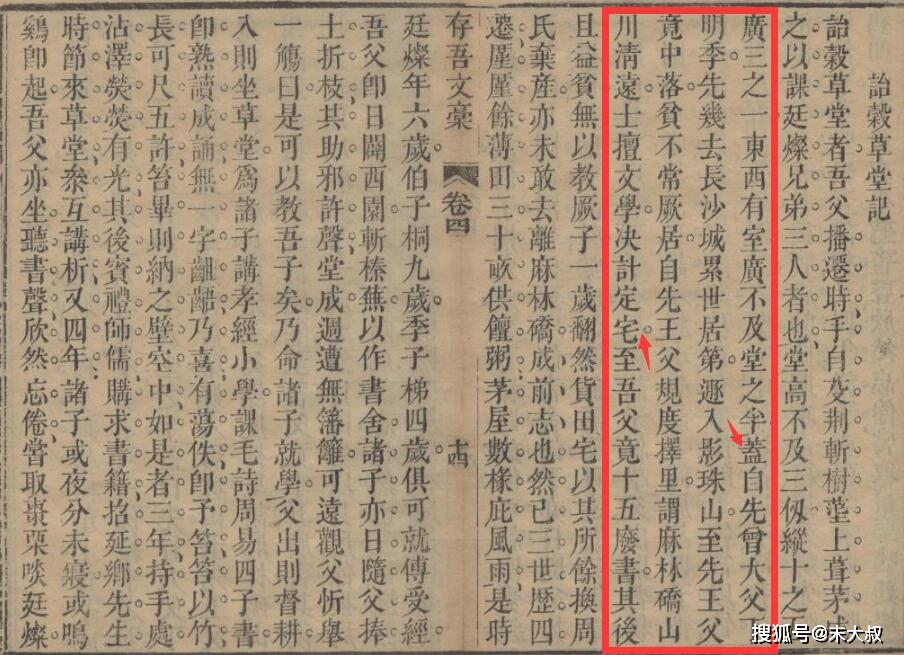 詒穀草堂記
詒穀草堂者吾父播遷時手自芟荊斬樹埀上葺茅
之以課廷燦兄弟三人者也堂高不及三仭縱十之
廣三之一東西有室廣不及堂之半蓋自先曾大父
明季先幾去長沙城累世居第遯入影珠山至先王父
竟中落貧不常厥居自先王父規度擇里謂麻林磽山
川淸遠士擅文學决計定宅至吾父竟十五廢書其後
且益貧無以教厥子一歲翻然貨田宅以其所餘換周
氏棄産亦未敢去離麻林磽成前志也然已三世歷四
遷厪厪餘薄田三十畝供饘粥茅屋數椽庇風雨是時
存吾文稾 卷四 十四
廷燦年六歲伯子桐九歲季子梯四歲俱可就傅受經
吾父卽日闢西園斬榛蕪以作書舍諸子亦日隨父捧
土折枝其助邪許聲堂成週遭無藩籬可遠觀父忻舉
一觴曰是可以教吾子矣乃命諸子就學父出則督耕
入則坐草堂爲諸子講孝經小學課毛詩周易四子書
卽熟讀成誦無一字齟齬乃喜有蕩佚卽予笞笞以竹
長可尺五許笞畢則納之壁空中如是者三年持手處
沾澤熒熒有光其後賓禮師儒購求書籍招延鄉先生
時節來草堂叅互講析又四年諸子或夜分未寢或鳴
鷄卽起吾父亦坐聽書聲欣然忘倦嘗取棗栗啖廷燦
搜狐号@未大叔